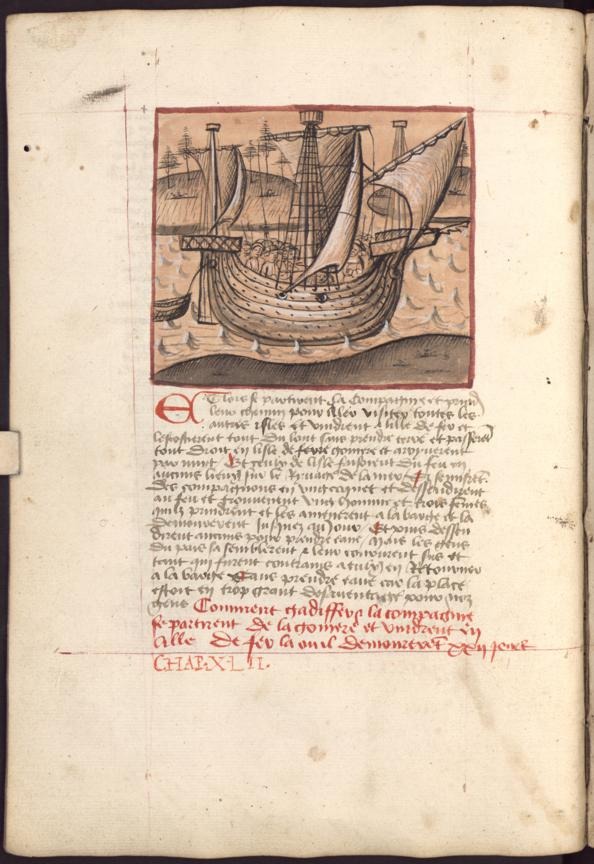 Et lors se partirent la compaignie et prind
leur chemin pour aler visiter toutes les
autres isles et vindrent a lille de fer et
lescostierent tout du lont sans prendre terre et passerent
tout droit en lisle de gomere et arriverent
par nuit Et ceulx de lisle faisoient du feu en
aucuns lieux sur le Rivage de la mer Et se mistrent
des compaignons en ung coquet et dessendirent
au feu et trouverent ung homme et trois femes
quilz prindrent et les amenerent a la barge et la
demourerent jusques au jour Et puis dessen
dirent aucuns pour prendre eaue Mais les gens
du pais sasemblerent et leur coururent sus et
tant quilz furent contrains a eulx en Retourner
a la barge Sans prendre eaue car la place
estoit en trop grant desavantaige pour noz
gens Comment gadiffer et la compaignie
se partirent de la gomere et vindrent en
lille de fer la ou il demourerent xxii jours
CHAP. XLII.